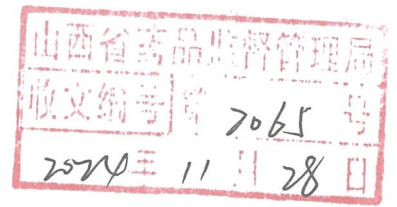 山西省药品监督管理局
收文编号 第 2065 号
2024年 11月 28日